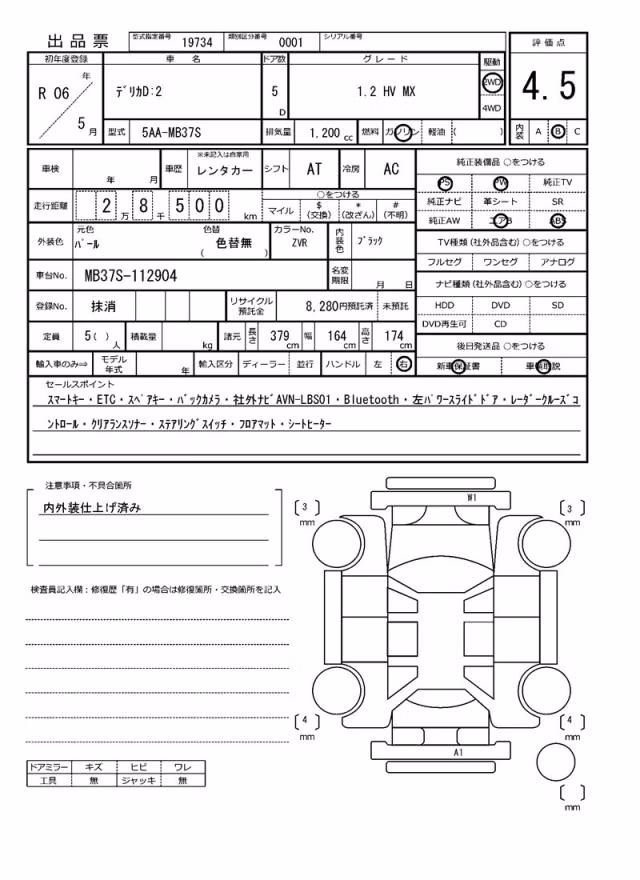 出品票 型式指定番号 19734 類別区分番号 0001 シリアル番号
初年度登録 車名 ドア数 グレード 駆動 評価点
R 06 年 5 月 デリカD:2 5 D 1.2 HV MX 2WD 4WD 4.5
型式 5AA-MB37S 排気量 1.200 cc 燃料 ガソリン 軽油 ( ) 内装 A B C
車検 年 月 車歴 ※未記入は自家用 レンタカー シフト AT 冷房 AC
走行距離 2 万 8 千 5 0 0 km ○をつける マイル $ (交換) * (改ざん) # (不明)
外装色 元色 パール 色替 色替無 ( ) カラーNo. ZVR 内装色 ブラック
車台No. MB37S-112904 名変期限 月 日
登録No. 抹消 リサイクル預託金 8,280円預託済 未預託
定員 5 ( ) 人 積載量 kg 諸元 長さ 379 cm 幅 164 cm 高さ 174 cm
輸入車のみ⇒ モデル年式 年 輸入区分 ディーラー 並行 ハンドル 左 右
純正装備品 ○をつける
PS PW 純正TV
純正ナビ 革シート SR
純正AW エアB ABS
TV種類 (社外品含む) ○をつける
フルセグ ワンセグ アナログ
ナビ種類 (社外品含む) ○をつける
HDD DVD SD
DVD再生可 CD
後日発送品 ○をつける
新車保証書 車輌取説
セールスポイント
スマートキー・ETC・スペアキー・バックカメラ・社外ナビAVN-LBS01・Bluetooth・左パワースライドドア・レーダークルーズコ
ントロール・クリアランスソナー・ステアリングスイッチ・フロアマット・シートヒーター
注意事項・不具合箇所
内外装仕上げ済み
検査員記入欄：修復歴「有」の場合は修復箇所・交換箇所を記入
ドアミラー キズ ヒビ ワレ
工具 無 ジャッキ 無
W1
3 mm
3 mm
4 mm
4 mm
A1
mm